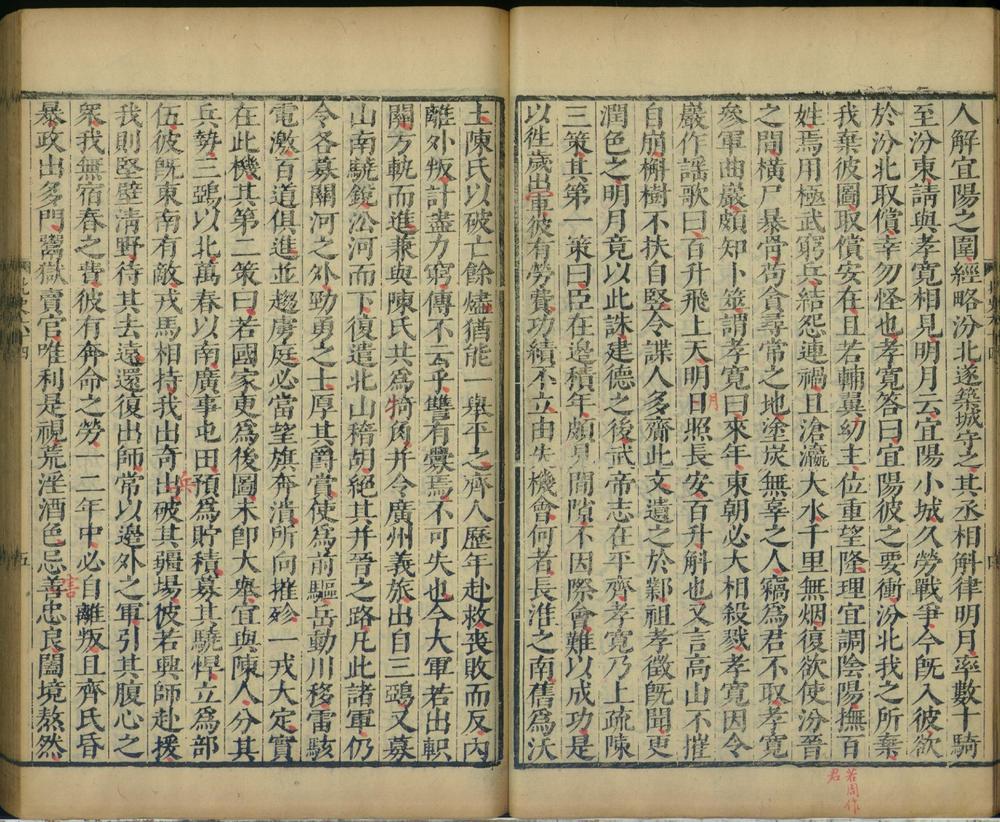 人解宜陽之圍經略汾北遂築城守之其丞相斛律明月率數十騎
至汾東請與孝寬相見明月云宜陽小城久勞戰爭今旣入彼欲
於汾北取償幸勿怪也孝寬答曰宜陽彼之要衝汾北我之所棄
我棄彼圖取償安在且若輔翼幼主位重望隆理宜調陰陽撫百
姓焉用極武窮兵結怨連禍且滄瀛大水千里無烟復欲使汾晉
之間橫尸暴骨苟貪尋常之地塗炭無辜之人竊爲君不取孝寬
叅軍曲巖頗知卜筮謂孝寬曰來年東朝必大相殺戮孝寬因令
巖作謡歌曰百升飛上天明日照長安百升斛也又言高山不摧
自崩槲樹不扶自竪令諜人多齎此文遺之於鄴祖孝徵旣聞更
潤色之明月竟以此誅建德之後武帝志在平齊孝寬乃上疏陳
三策其第一策曰臣在邊積年頗見間隙不因際會難以成功是
以徃歲出軍彼有勞費功績不立由失機會何者長淮之南舊爲沃
土陳氏以破亡餘燼猶能一舉平之齊人歷年赴救喪敗而反内
離外叛計盡力窮傳不云乎讐有釁焉不可失也今大軍若出軹
關方軌而進兼與陳氏共爲犄角并令廣州義旅出自三鵶又募
山南驍銳㳂河而下復遣北山稽胡絶其并晉之路凡此諸軍仍
令各募關河之外勁勇之士厚其爵賞使爲前驅岳動川移雷駭
電激百道俱進並趨虜庭必當望旗奔潰所向摧殄一戎大定實
在此機其第二策曰若國家更爲後圖未即大舉宜與陳人分其
兵勢三鵶以北萬春以南廣事屯田預爲貯積募其驍悍立爲部
伍彼旣東南有敵戎馬相持我出奇出破其疆場彼若興師赴援
我則堅壁清野待其去遠還復出師常以邊外之軍引其腹心之
衆我無宿舂之費彼有奔命之勞一二年中必自離叛且齊氏昏
暴政出多門鬻獄賣官唯利是視荒淫酒色忌善忠良闔境熬然
月
兵
害
若周作君
五